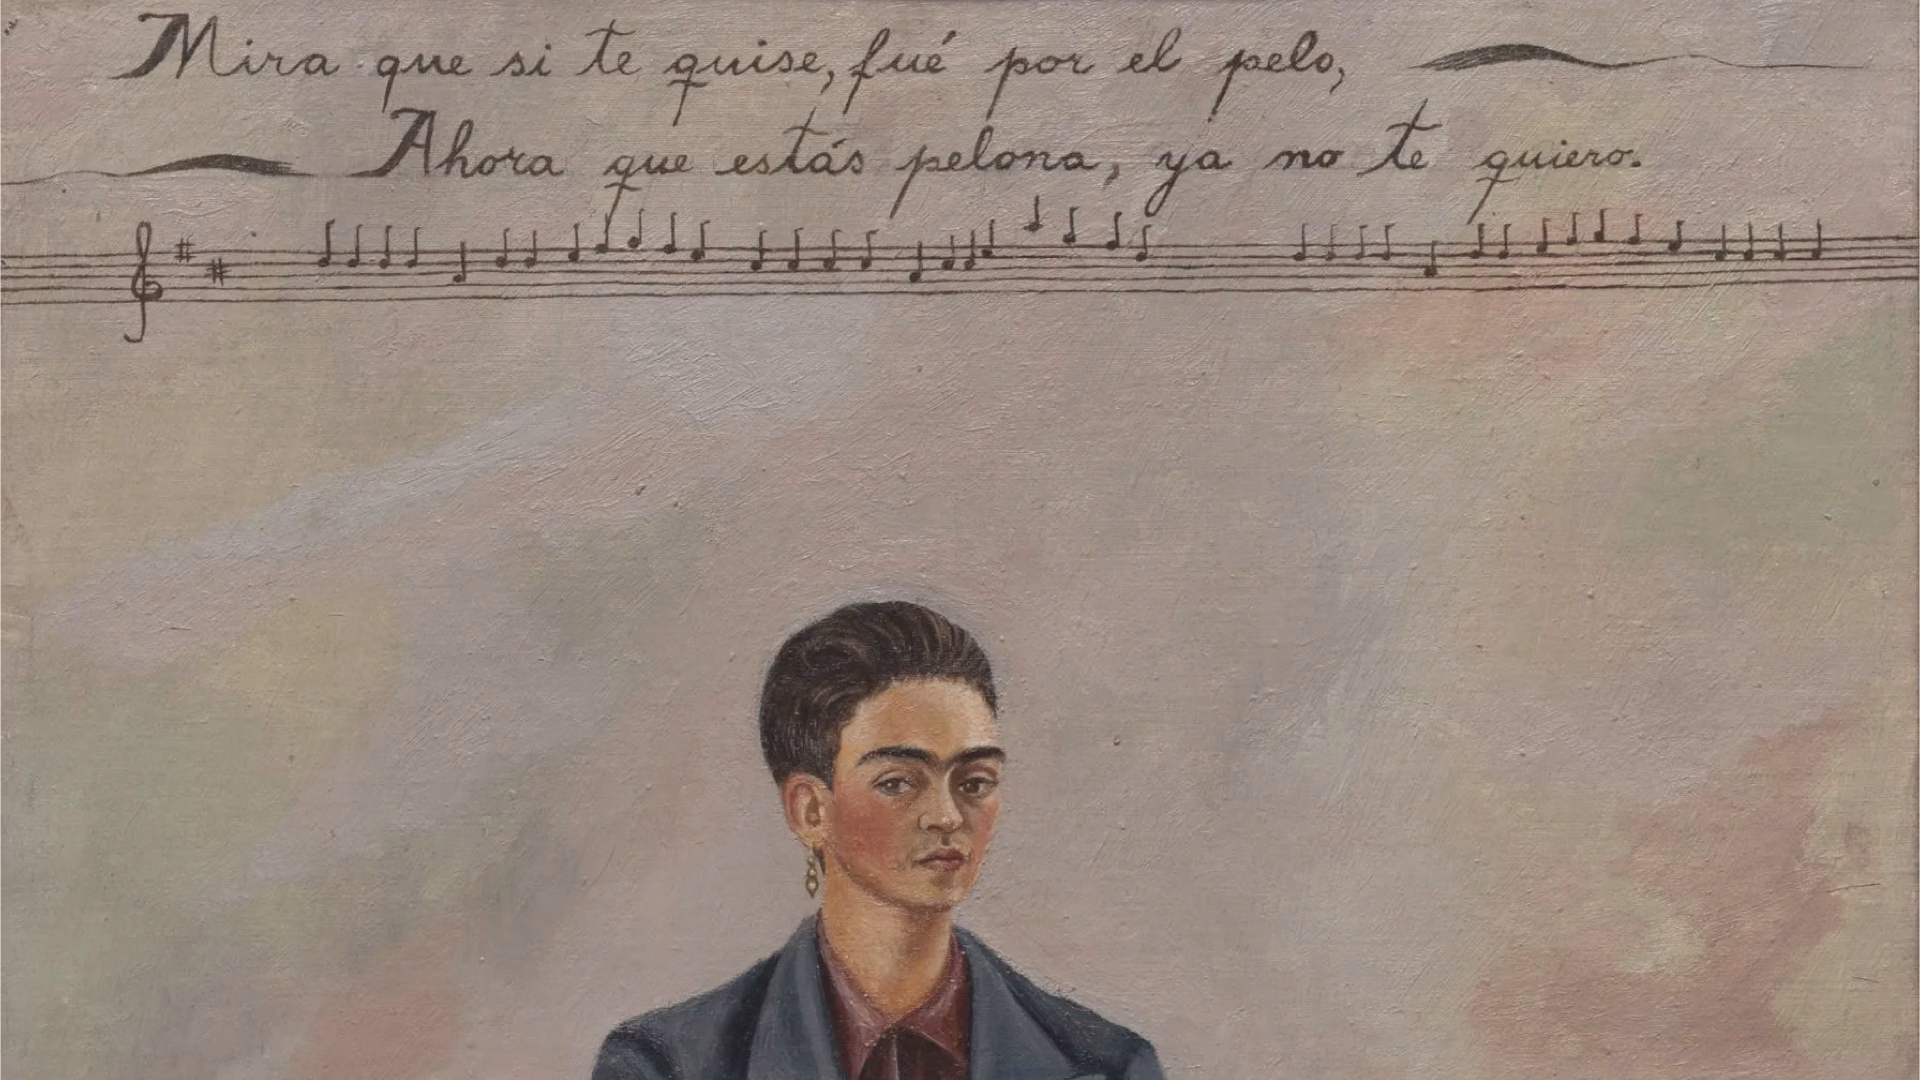 Mira que si te quise, fué por el pelo,
Ahora que estás pelona, ya no te quiero.